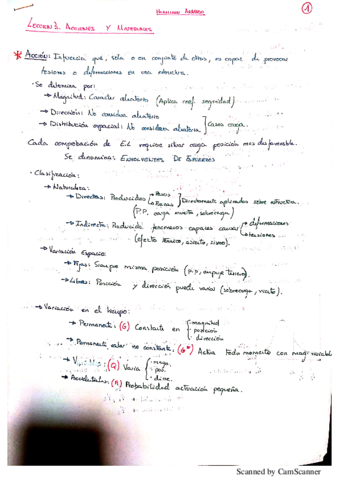 ①
LECCION 3. ACCIONES Y MATERIALES
* ACCIÓN: Influencia que, sola o en conjunto de otras, es capaz de provocar
tesiones o deformaciones en una estructura.
· Se determina por:
→ Magnitud: Caracter aleatorio (Aplica coef. seguridad)
→ Dirección: No considera aleatorio
→ Distribución espacial: No considera aleatoria
Casos carga.
Cada comprobación de E.L requiere situar carga posición mas desfavorable.
Se denomina: ENVOLVENTES DE ESFUERZOS
· Clasificación:
→ Naturaleza:
→ Directas: Producidas
→ Pesos
→ Fuerzas
Directamente aplicadas sobre estructura.
(P.P, carga muerta, sobrecarga)
→ Indirecta: Producida fenomenos capaces causar
→ deformaciones
→ tensiones
(efecto termico, asiento, sismo).
→ Variación Espacio:
→ Fijas: Siempre misma posición (P.P, empuje terreno).
→ Libres: Posición y dirección puede variar (sobrecarga, viento).
→ Variación en el tiempo:
→ Permanente: (G) Constante en
- magnitud
- posicion
- dirección
→ Permanente valor no constante: (G*) Actua todo momento con mag. variable
(Q) Varia
- mag.
- pos.
- direc.
→ Accidentales: (A) Probabilidad activación pequeña.
Scanned by CamScanner